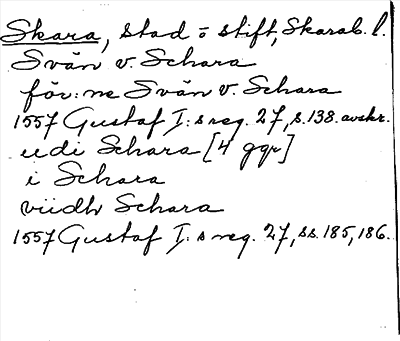 Skara, stad o stift, Skarab. l.
Svän v. Schara
för: ne Svän v. Schara
1557 Gustaf I: s reg. 27, s. 138. avskr.
udi Schara [4 ggr]
i Schara
viidh Schara
1557 Gustaf I: s reg. 27, ss. 185, 186.